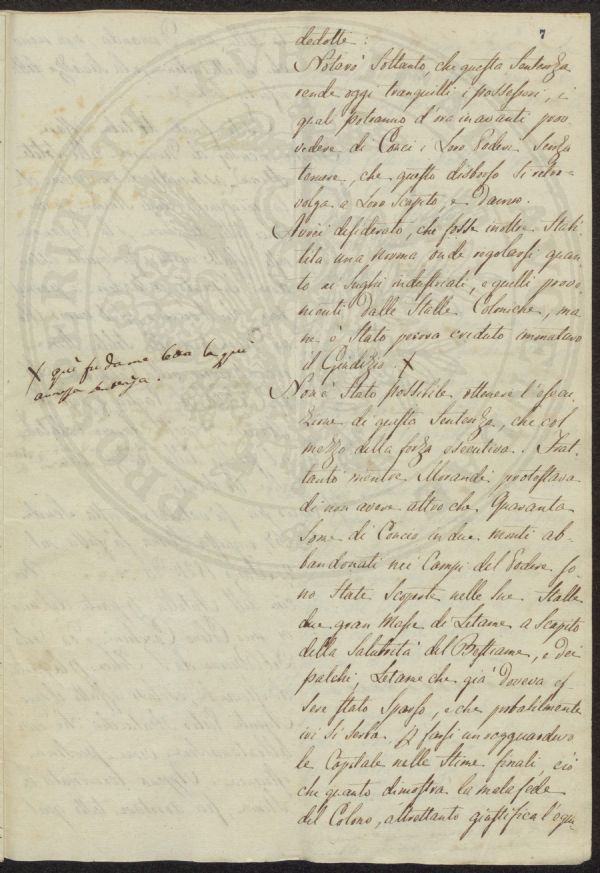 7
dedotti:
Notarò Soltanto, che questa Sentenza
rende oggi tranquilli i possessori, i
quali potranno d'ora in avanti prov
vedere di Conci i Loro Poderi Senza
temere, che questo disborso Si rivol
volga a Loro Scapito, e Danno.
Avrei desiderato, che fosse inoltre Stabi
lita una norma, onde regolarsi quan
to ai Sughi industriali, e quelli prove
nienti dalle Stalle Coloniche, ma
ne è Stato perora creduto immaturo
il Giudizio. X
X qui fu da me letta la qui
annessa
Non è Stato possibile ottenere l'esecu
zione di questa Sentenza, che col
mezzo della forza esecutiva. Frat
tanto mentre Morandi protestava
di non avere altro che Quaranta
Some di Concio in due monti ab-
bandonati nei Campi del Podere So
no State Scoperte nelle Sue Stalle
due gran Masse di Letame a Scapito
della Salubrità del Bestiame, e dei
palchi, Letame che già Doveva es
sere Stato Sparso, e che probabilmente
ivi Si Serba p farsi un ragguardevo
le Capitale nelle Stime finali, ciò
che quanto dimostra la mala fede
del Colono, altrettanto giustifica l'equi